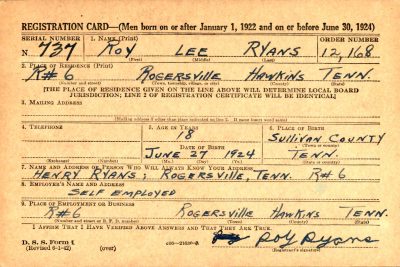 REGISTRATION CARD—(Men born on or after January 1, 1922 and on or before June 30, 1924)
SERIAL NUMBER 1. NAME (Print) ORDER NUMBER
N 737 ROY LEE RYANS 12,168
(First) (Middle) (Last)
2. PLACE OF RESIDENCE (Print)
R#6 ROGERSVILLE HAWKINS TENN.
(Number and street) (Town, township, village, or city) (County) (State)
[THE PLACE OF RESIDENCE GIVEN ON THE LINE ABOVE WILL DETERMINE LOCAL BOARD
JURISDICTION; LINE 2 OF REGISTRATION CERTIFICATE WILL BE IDENTICAL]
3. MAILING ADDRESS
[Mailing address if other than place indicated on line 2. If same insert word same]
4. TELEPHONE 5. AGE IN YEARS 6. PLACE OF BIRTH
18 SULLIVAN COUNTY
DATE OF BIRTH (Town or county)
JUNE 27 1924 TENN.
(Exchange) (Number) (Mo.) (Day) (Yr.) (State or country)
7. NAME AND ADDRESS OF PERSON WHO WILL ALWAYS KNOW YOUR ADDRESS
HENRY RYANS; ROGERSVILLE, TENN. R#6
8. EMPLOYER'S NAME AND ADDRESS
SELF EMPLOYED
9. PLACE OF EMPLOYMENT OR BUSINESS
R#6 ROGERSVILLE HAWKINS TENN.
(Number and street or R. F. D. number) (Town) (County) (State)
I AFFIRM THAT I HAVE VERIFIED ABOVE ANSWERS AND THAT THEY ARE TRUE.
D. S. S. Form 1 Roy Ryans
(Revised 6-1-42) (over) (Registrant's signature)